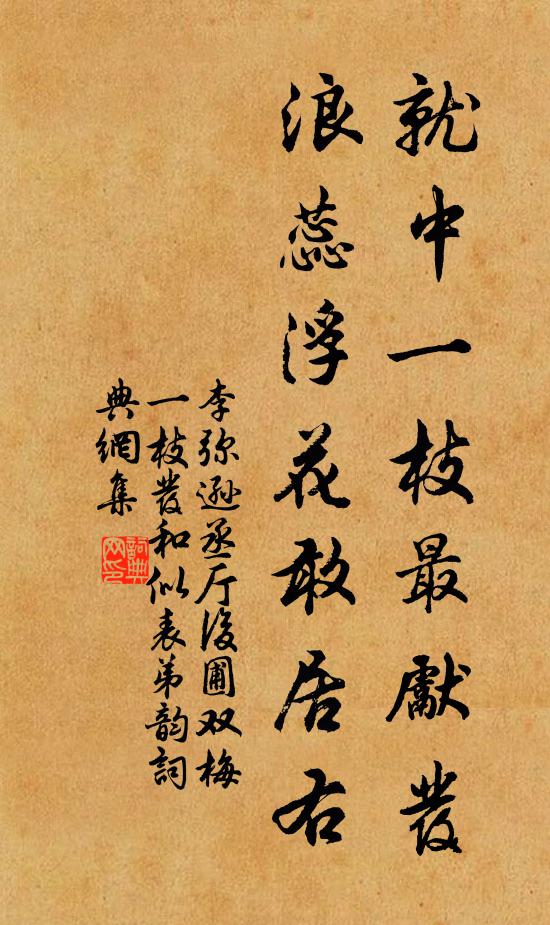 就中一枝最獻發
浪蕊浮花敢居右
李弥遜丞厅後圃双梅
一枝發和似表弟韵詞
典網集
詞典网印